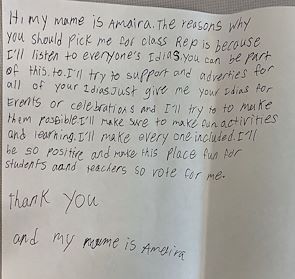 Hi my name is Amaira. The reasons why
you should pick me for class Rep is because
I'll listen to everyone's Idias. you can be part
of this. to. I'll try to support and adverties for
all of your Idias Just give me your Idias for
Erents or celebrations and I'll try to to make
them possible I'll make sure to make fun activities
and learning. I'll make every one included. I'll
be so positive and make this place fun for
students aand teachers so vote for me.
thank you
and my name is Ameira